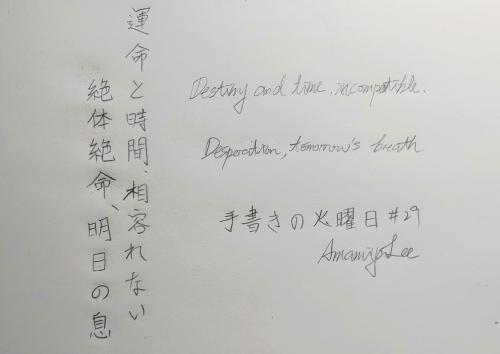 運命と時間、相容れない
絶体絶命、明日の息
Destiny and time, incompatible.
Desperation, tomorrow's breath.
手書きの火曜日#29
Amamiya Lee